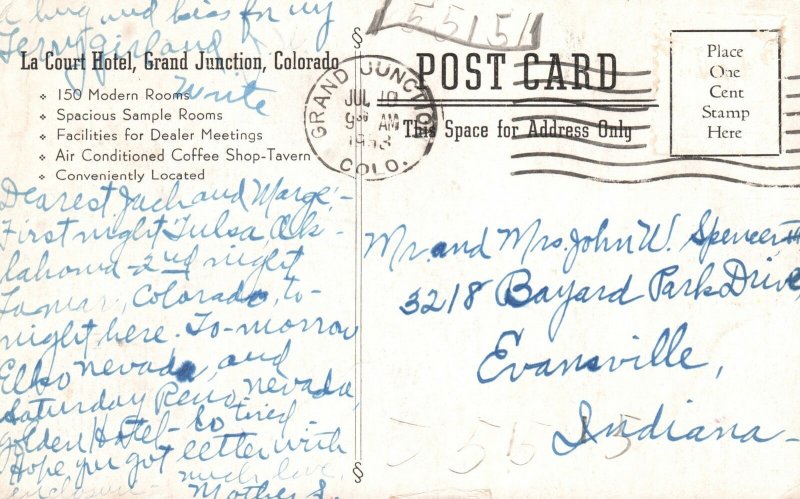 a hug and kiss for my
Terry girl and
write
La Court Hotel, Grand Junction, Colorado
❖ 150 Modern Rooms
❖ Spacious Sample Rooms
❖ Facilities for Dealer Meetings
❖ Air Conditioned Coffee Shop-Tavern
❖ Conveniently Located
Dearest Jack and Marge:-
First night Tulsa Ok-
lahoma - 2nd night
Lamar, Colorado, to-
night here. To-morrow
Elko nevada, and
Saturday Reno, nevada,
golden Hotel - So tired -
Hope you got letter with
enclosure - much love,
Mother S.
55151
POST CARD
This Space for Address Only
GRAND JUNCTION
JUL 10
9 30 AM
1953
COLO.
Place
One
Cent
Stamp
Here
Mr. and Mrs. John W. Spencer III
3218 Bayard Park Drive
Evansville,
Indiana-